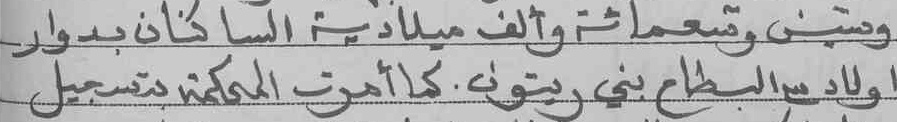 وستين وتسعمائة وألف ميلادية الساكنان بدوار
اولاد البطاح بني ريتون. كما أمرت المحكمة بتسجيل